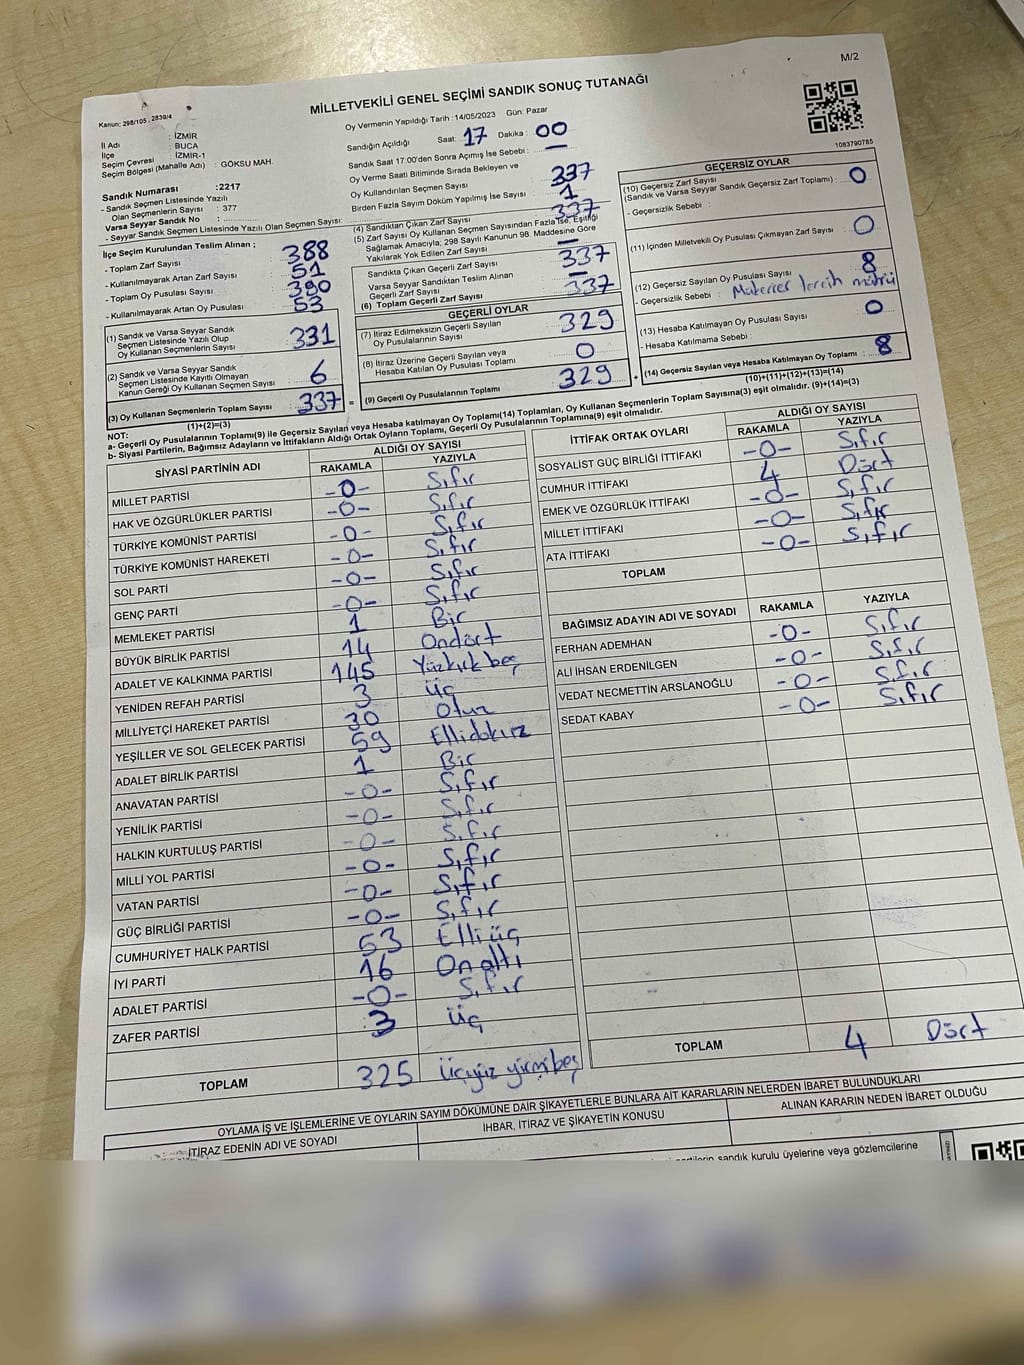 M/2
MİLLETVEKİLİ GENEL SEÇİMİ SANDIK SONUÇ TUTANAĞI
Kanun; 298/105 , 2839/4
Oy Vermenin Yapıldığı Tarih : 14/05/2023 Gün: Pazar
Sandığın Açıldığı Saat: 17 Dakika : 00
Sandık Saat 17:00'den Sonra Açımış İse Sebebi : —
1083790785
İl Adı : İZMİR
İlçe : BUCA
Seçim Çevresi : İZMİR-1
Seçim Bölgesi (Mahalle Adı) : GÖKSU MAH.
Sandık Numarası : 2217
- Sandık Seçmen Listesinde Yazılı
Olan Seçmenlerin Sayısı : 377
Varsa Seyyar Sandık No :
- Seyyar Sandık Seçmen Listesinde Yazılı Olan Seçmen Sayısı:
İlçe Seçim Kurulundan Teslim Alınan ;
- Toplam Zarf Sayısı 388
- Kullanılmayarak Artan Zarf Sayısı 51
- Toplam Oy Pusulası Sayısı 390
- Kullanılmayarak Artan Oy Pusulası 53
(1) Sandık ve Varsa Seyyar Sandık
Seçmen Listesinde Yazılı Olup
Oy Kullanan Seçmenlerin Sayısı 331
(2) Sandık ve Varsa Seyyar Sandık
Seçmen Listesinde Kayıtlı Olmayan
Kanun Gereği Oy Kullanan Seçmen Sayısı 6
(3) Oy Kullanan Seçmenlerin Toplam Sayısı 337 =
(1)+(2)=(3)
Oy Verme Saati Bitiminde Sırada Bekleyen ve
Oy Kullandırılan Seçmen Sayısı 337
Birden Fazla Sayım Döküm Yapılmış İse Sayısı : 1
(4) Sandıktan Çıkan Zarf Sayısı 337
(5) Zarf Sayısı Oy Kullanan Seçmen Sayısından Fazla İse, Eşitliği
Sağlamak Amacıyla; 298 Sayılı Kanunun 98. Maddesine Göre
Yakılarak Yok Edilen Zarf Sayısı —
Sandıkta Çıkan Geçerli Zarf Sayısı 337
Varsa Seyyar Sandıktan Teslim Alınan
Geçerli Zarf Sayısı —
(6) Toplam Geçerli Zarf Sayısı 337
GEÇERLİ OYLAR
(7) İtiraz Edilmeksizin Geçerli Sayılan
Oy Pusulalarının Sayısı 329
(8) İtiraz Üzerine Geçerli Sayılan veya
Hesaba Katılan Oy Pusulası Toplamı 0
(9) Geçerli Oy Pusulalarının Toplamı 329 +
GEÇERSİZ OYLAR
(10) Geçersiz Zarf Sayısı
(Sandık ve Varsa Seyyar Sandık Geçersiz Zarf Toplamı) : 0
- Geçersizlik Sebebi :
(11) İçinden Milletvekili Oy Pusulası Çıkmayan Zarf Sayısı : 0
(12) Geçersiz Sayılan Oy Pusulası Sayısı : 8
- Geçersizlik Sebebi : Mükerrer tercih mührü
(13) Hesaba Katılmayan Oy Pusulası Sayısı : 0
- Hesaba Katılmama Sebebi :
(14) Geçersiz Sayılan veya Hesaba Katılmayan Oy Toplamı : 8
(10)+(11)+(12)+(13)=(14)
NOT:
a- Geçerli Oy Pusulalarının Toplamı(9) ile Geçersiz Sayılan veya Hesaba katılmayan Oy Toplamı(14) Toplamları, Oy Kullanan Seçmenlerin Toplam Sayısına(3) eşit olmalıdır. (9)+(14)=(3)
b- Siyasi Partilerin, Bağımsız Adayların ve İttifakların Aldığı Ortak Oyların Toplamı, Geçerli Oy Pusulalarının Toplamına(9) eşit olmalıdır.
SİYASİ PARTİNİN ADI ALDIĞI OY SAYISI
RAKAMLA YAZIYLA
MİLLET PARTİSİ -0- Sıfır
HAK VE ÖZGÜRLÜKLER PARTİSİ -0- Sıfır
TÜRKİYE KOMÜNİST PARTİSİ -0- Sıfır
TÜRKİYE KOMÜNİST HAREKETİ -0- Sıfır
SOL PARTİ -0- Sıfır
GENÇ PARTİ -0- Sıfır
MEMLEKET PARTİSİ 1 Bir
BÜYÜK BİRLİK PARTİSİ 14 Ondört
ADALET VE KALKINMA PARTİSİ 145 Yüzkırkbeş
YENİDEN REFAH PARTİSİ 3 Üç
MİLLİYETÇİ HAREKET PARTİSİ 30 Otuz
YEŞİLLER VE SOL GELECEK PARTİSİ 59 Ellidokuz
ADALET BİRLİK PARTİSİ 1 Bir
ANAVATAN PARTİSİ -0- Sıfır
YENİLİK PARTİSİ -0- Sıfır
HALKIN KURTULUŞ PARTİSİ -0- Sıfır
MİLLİ YOL PARTİSİ -0- Sıfır
VATAN PARTİSİ -0- Sıfır
GÜÇ BİRLİĞİ PARTİSİ -0- Sıfır
CUMHURİYET HALK PARTİSİ 53 Elliüç
İYİ PARTİ 16 Onaltı
ADALET PARTİSİ -0- Sıfır
ZAFER PARTİSİ 3 Üç
TOPLAM 325 Üçyüz yirmibeş
İTTİFAK ORTAK OYLARI ALDIĞI OY SAYISI
RAKAMLA YAZIYLA
SOSYALİST GÜÇ BİRLİĞİ İTTİFAKI -0- Sıfır
CUMHUR İTTİFAKI 4 Dört
EMEK VE ÖZGÜRLÜK İTTİFAKI -0- Sıfır
MİLLET İTTİFAKI -0- Sıfır
ATA İTTİFAKI -0- Sıfır
TOPLAM
BAĞIMSIZ ADAYIN ADI VE SOYADI RAKAMLA YAZIYLA
FERHAN ADEMHAN -0- Sıfır
ALİ İHSAN ERDENİLGEN -0- Sıfır
VEDAT NECMETTİN ARSLANOĞLU -0- Sıfır
SEDAT KABAY -0- Sıfır
TOPLAM 4 Dört
OYLAMA İŞ VE İŞLEMLERİNE VE OYLARIN SAYIM DÖKÜMÜNE DAİR ŞİKAYETLERLE BUNLARA AİT KARARLARIN NELERDEN İBARET BULUNDUKLARI
İTİRAZ EDENİN ADI VE SOYADI İHBAR, İTİRAZ VE ŞİKAYETİN KONUSU ALINAN KARARIN NEDEN İBARET OLDUĞU
sandık kurulu üyelerine veya gözlemcilerine